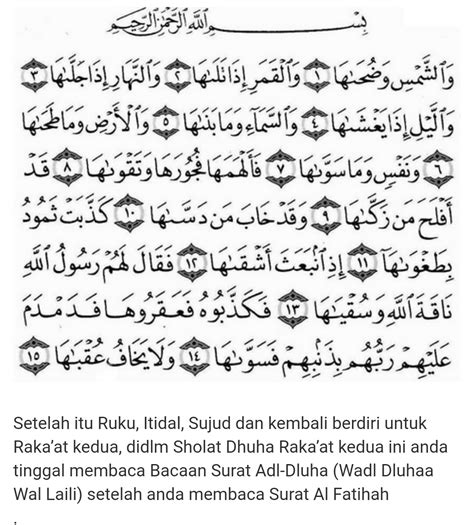 بِسْــــــمِ اللَّهِ الرَّحْمَٰنِ الرَّحِيمِ
وَالشَّمْسِ وَضُحَىٰهَا ١ وَالْقَمَرِ إِذَا تَلَىٰهَا ٢ وَالنَّهَارِ إِذَا جَلَّىٰهَا ٣
وَالَّيْلِ إِذَا يَغْشَىٰهَا ٤ وَالسَّمَآءِ وَمَا بَنَىٰهَا ٥ وَالْأَرْضِ وَمَا طَحَىٰهَا
٦ وَنَفْسٍ وَمَا سَوَّىٰهَا ٧ فَأَلْهَمَهَا فُجُورَهَا وَتَقْوَىٰهَا ٨ قَدْ
أَفْلَحَ مَن زَكَّىٰهَا ٩ وَقَدْ خَابَ مَن دَسَّىٰهَا ١٠ كَذَّبَتْ ثَمُودُ
بِطَغْوَىٰهَآ ١١ إِذِ انۢبَعَثَ أَشْقَىٰهَا ١٢ فَقَالَ لَهُمْ رَسُولُ اللَّهِ
نَاقَةَ اللَّهِ وَسُقْيَٰهَا ١٣ فَكَذَّبُوهُ فَعَقَرُوهَا فَدَمْدَمَ
عَلَيْهِمْ رَبُّهُم بِذَنۢبِهِمْ فَسَوَّىٰهَا ١٤ وَلَا يَخَافُ عُقْبَٰهَا ١٥
Setelah itu Ruku, Itidal, Sujud dan kembali berdiri untuk
Raka’at kedua, didlm Sholat Dhuha Raka’at kedua ini anda
tinggal membaca Bacaan Surat Adl-Dluha (Wadl Dluhaa
Wal Laili) setelah anda membaca Surat Al Fatihah
,